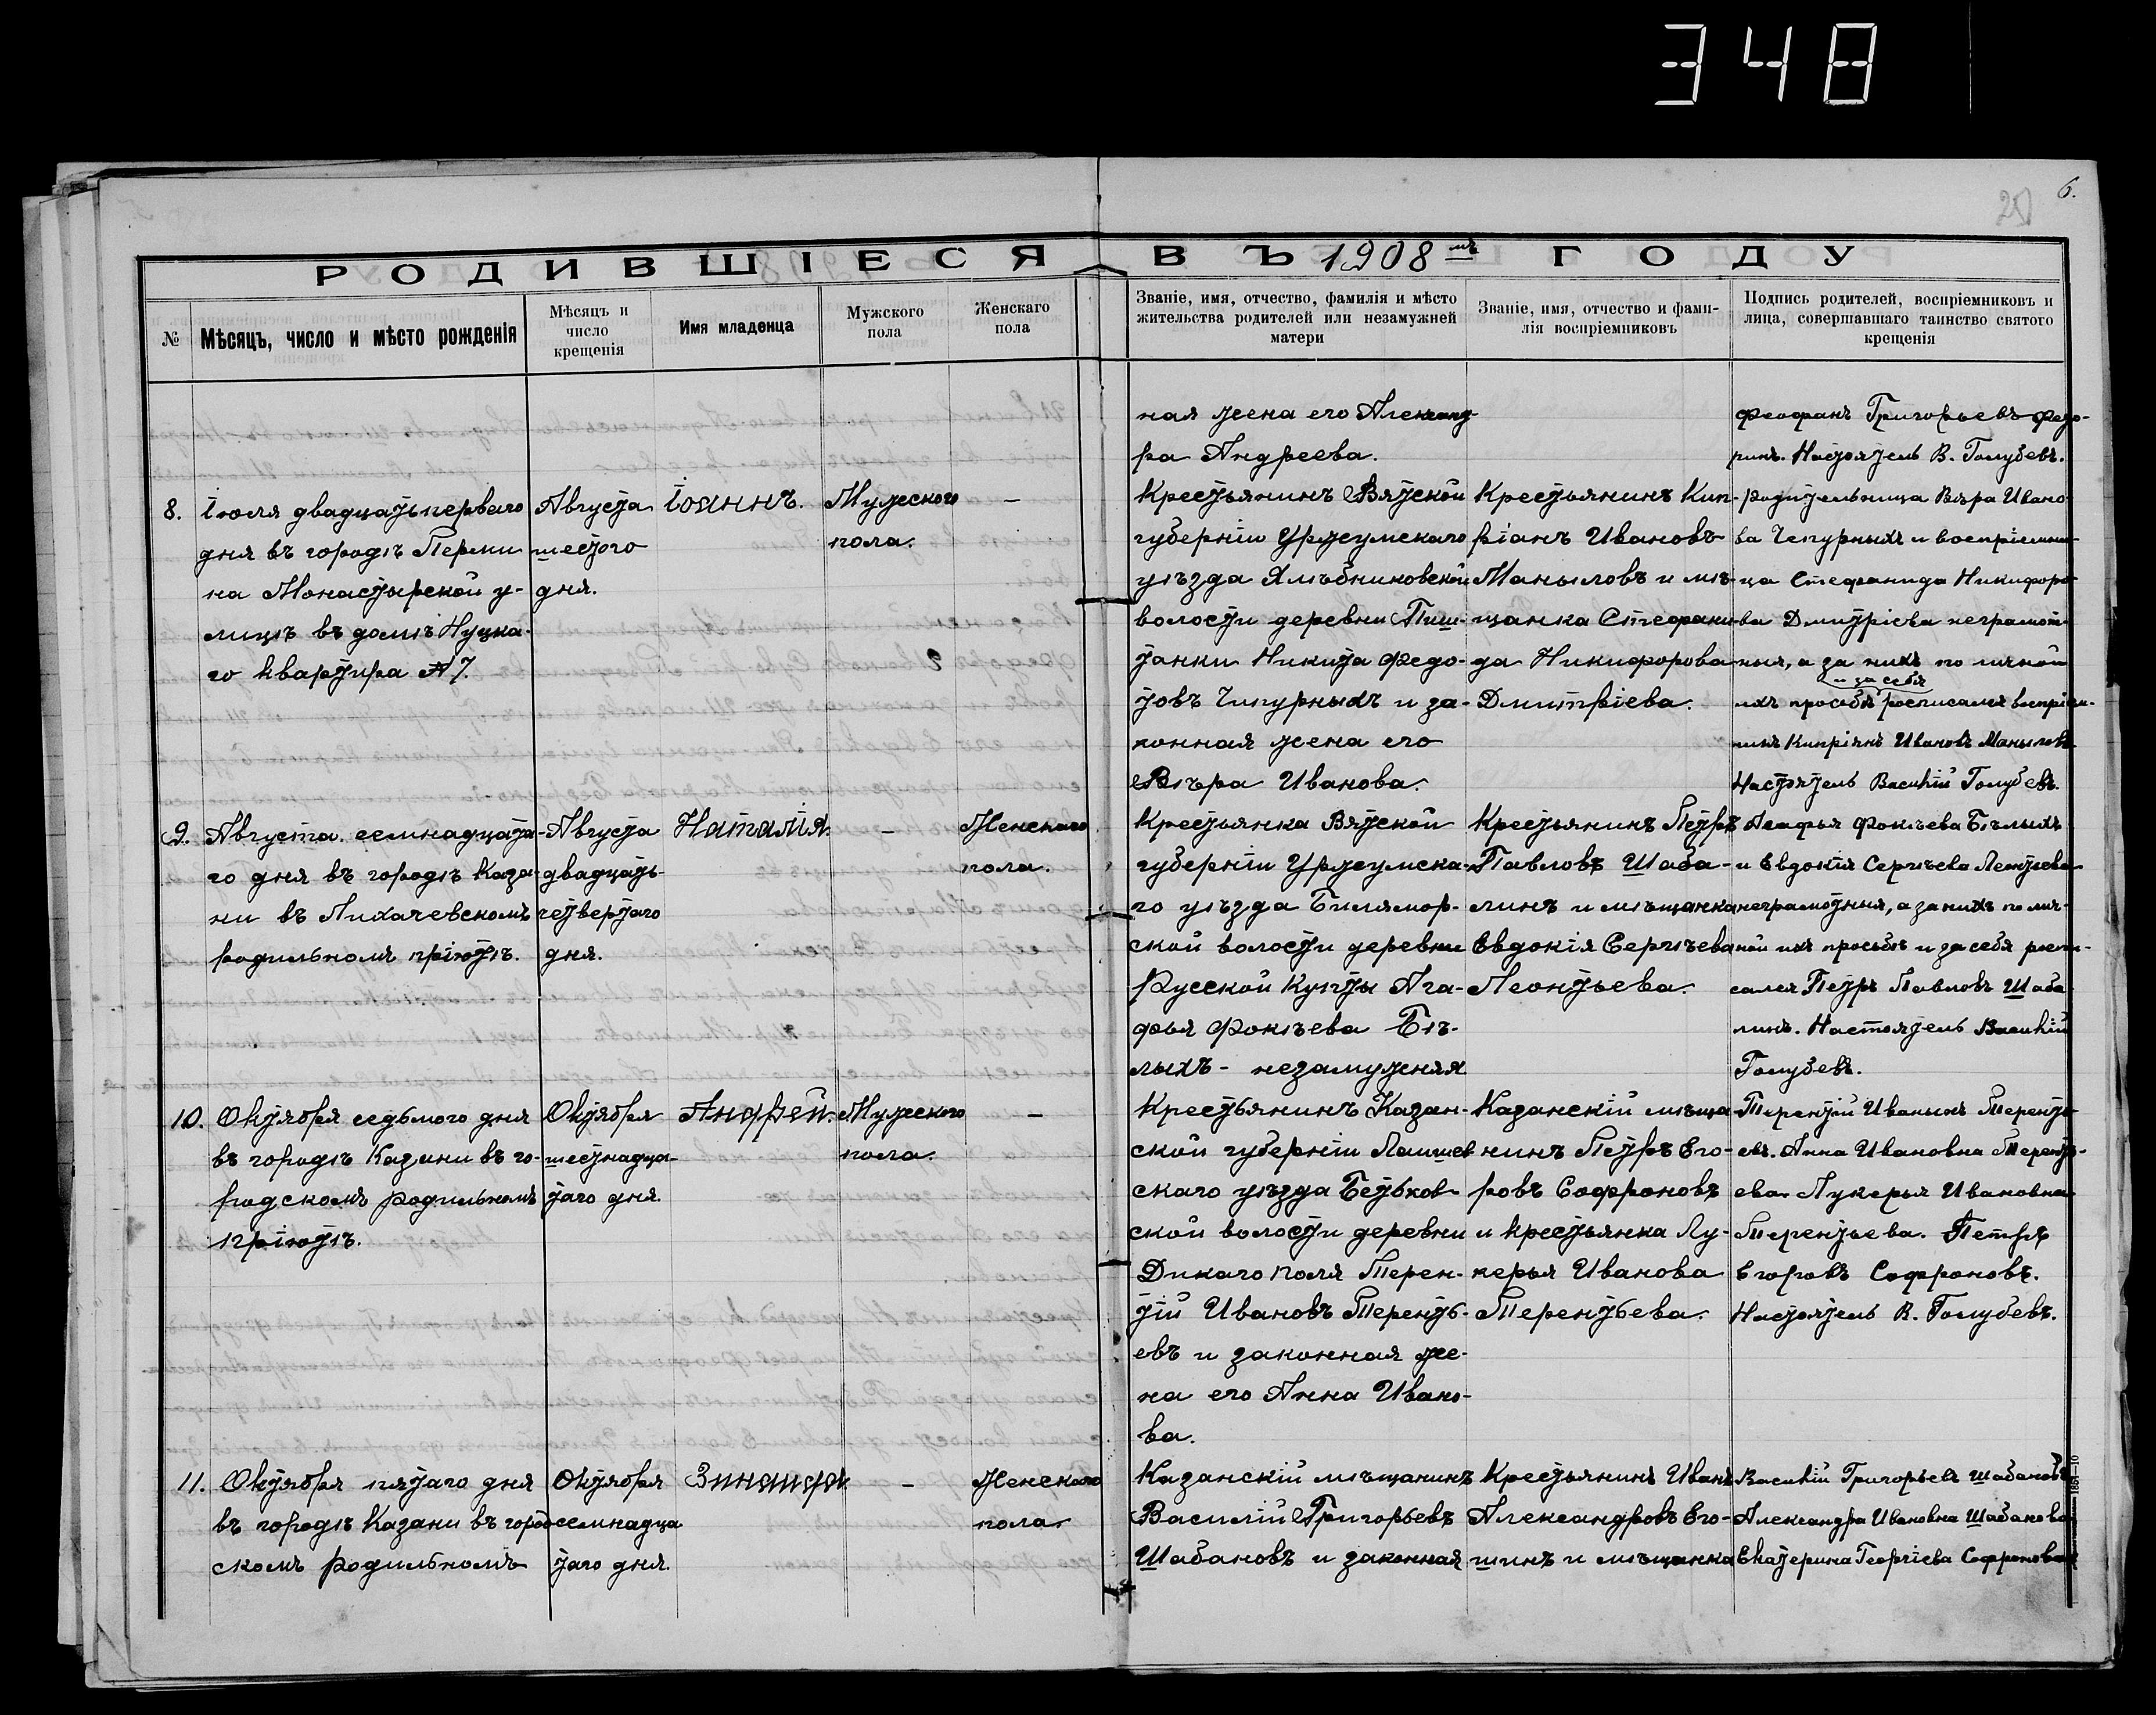 348
6.
25
РОДИВШІЕСЯ ВЪ 1908мъ ГОДУ
№
Мѣсяцъ, число и мѣсто рожденія
Мѣсяцъ и
число
крещенія
Имя младенца
Мужского
пола
Женскаго
пола
Званіе, имя, отчество, фамилія и мѣсто
жительства родителей или незамужней
матери
Званіе, имя, отчество и фами-
лія воспріемниковъ
Подпись родителей, воспріемниковъ и
лица, совершавшаго таинство святого
крещенія
ная жена его Александ-
ра Андреева.
Феофанъ Григорьевъ Федо-
ринъ. Настоятель В. Голубевъ.
8.
Іюля двадцать перваго
дня въ городѣ Перми
на Монастырской у-
лицѣ въ домѣ Нуцка-
го квартира № 7.
Августа
шестого
дня.
Іоаннъ.
Мужеского
пола.
—
Крестьянинъ Вятской
губерніи Уржумскаго
уѣзда Ямъбниковской
волости деревни Пиш-
танки Никита Федо-
товъ Чипурныхъ и за-
конная жена его
Вѣра Иванова.
Крестьянинъ Кип-
ріанъ Ивановъ
Маныловъ и мѣ-
щанка Стефани-
да Никифорова
Дмитріева.
Родительница Вѣра Ивано-
ва Чепурныхъ и воспріемни-
ца Стефанида Никифоро-
ва Дмитріева неграмот-
ныя, а за нихъ по личной
и за себя
ихъ просьбѣ росписался воспріем-
никъ Кипріянъ Ивановъ Маныловъ
Настоятель Василій Голубевъ.
9.
Августа семнадцата-
го дня въ городѣ Каза-
ни въ Лихачевскомъ
родильномъ пріютѣ.
Августа
двадцать
четвертаго
дня.
Наталія.
—
Женскаго
пола.
Крестьянка Вятской
губерніи Уржумска-
го уѣзда Билямор-
ской волости деревни
Русской Купты Ага-
фья Фокѣева Бѣ-
лыхъ - незамужняя
Крестьянинъ Петръ
Павловъ Шаба-
линъ и мѣщанка
Евдокія Сергѣева
Леонтьева.
Агафья Фокѣева Бѣлыхъ
и Евдокія Сергѣева Леонтьева
неграмотныя, а за нихъ по лич-
ной ихъ просьбѣ и за себя роспи-
сался Петръ Павловъ Шаба-
линъ. Настоятель Василій
Голубевъ.
10.
Октября седьмого дня
въ городѣ Казани въ го-
родскомъ родильномъ
пріютѣ.
Октября
шестнадца-
таго дня.
Андрей.
Мужеского
пола.
—
Крестьянинъ Казан-
ской губерніи Лаишев-
скаго уѣзда Бетьков-
ской волости деревни
Дикаго Поля Терен-
тій Ивановъ Теренть-
евъ и законная же-
на его Анна Ивано-
ва.
Казанскій мѣща-
нинъ Петръ Его-
ровъ Софроновъ
и крестьянка Лу-
керья Иванова
Терентьева.
Терентій Иванычъ Теренть-
евъ. Анна Ивановна Теренть-
ева. Лукерья Ивановна
Терентьева. Петръ
Егоровъ Софроновъ.
Настоятель В. Голубевъ.
11.
Октября пятаго дня
въ городѣ Казани въ город-
скомъ родильномъ
Октября
семнадца
таго дня.
Зинаида
—
Женскаго
пола.
Казанскій мѣщанинъ
Василій Григорьевъ
Шабановъ и законная
Крестьянинъ Иванъ
Александровъ Его-
шинъ и мѣщанка
Василій Григорьевъ Шабановъ
Александра Ивановна Шабанова
Екатерина Георгіева Софронова